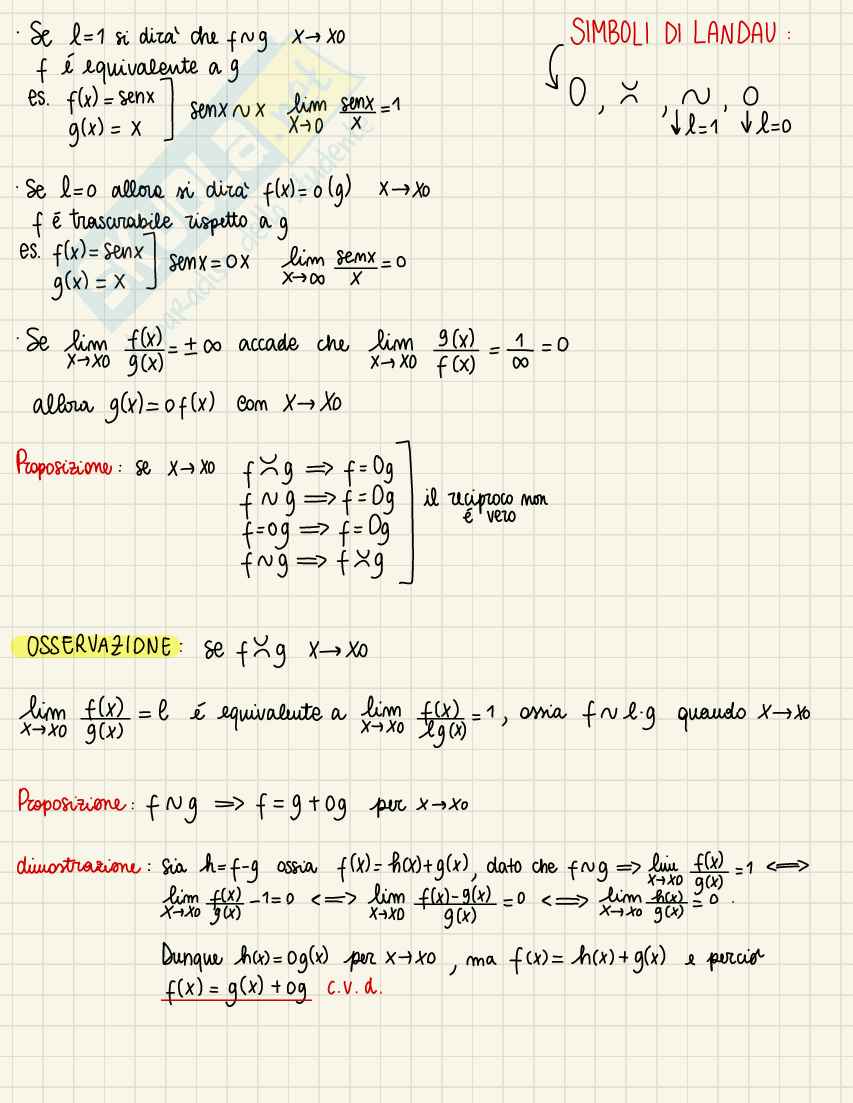 · Se l=1 si dirà che f~g x→x0
f é equivalente a g
es. f(x) = senx
g(x) = x
senx ~ x lim x→0 senx/x = 1
SIMBOLI DI LANDAU :
O , ≍ , ~ , o
↓l=1 ↓l=0
· Se l=0 allora si dirà f(x)=o(g) x→x0
f é trascurabile rispetto a g
es. f(x)= senx
g(x) = x
senx = ox lim x→∞ senx/x = 0
· Se lim x→x0 f(x)/g(x) = ± ∞ accade che lim x→x0 g(x)/f(x) = 1/∞ = 0
allora g(x)=o f(x) con x→x0
Proposizione : se x→x0 f ≍ g ⇒ f = Og
f ~ g ⇒ f = Og
f = og ⇒ f = Og
f ~ g ⇒ f ≍ g
il reciproco non
é vero
OSSERVAZIONE : se f ≍ g x→x0
lim x→x0 f(x)/g(x) = l é equivalente a lim x→x0 f(x)/lg(x) = 1 , ossia f ~ l·g quando x→x0
Proposizione : f ~ g ⇒ f = g + og per x→x0
dimostrazione : Sia h=f-g ossia f(x)= h(x)+g(x), dato che f~g ⇒ lim x→x0 f(x)/g(x) = 1 ⇔
lim x→x0 f(x)/g(x) -1=0 ⇔ lim x→x0 f(x)-g(x)/g(x) = 0 ⇔ lim x→x0 h(x)/g(x) = 0 .
Dunque h(x)= og(x) per x→x0 , ma f(x) = h(x) + g(x) e perciò
f(x) = g(x) + og c.v.d.
SKUOLA.net
paradiso dello studente